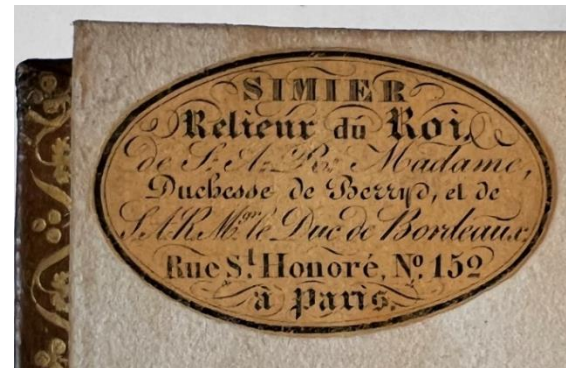 SIMIER
Relieur du Roi,
de S. A. R. Madame,
Duchesse de Berry, et de
S.A.R. Mgr. le Duc de Bordeaux,
Rue St. Honoré, No. 152
à Paris.